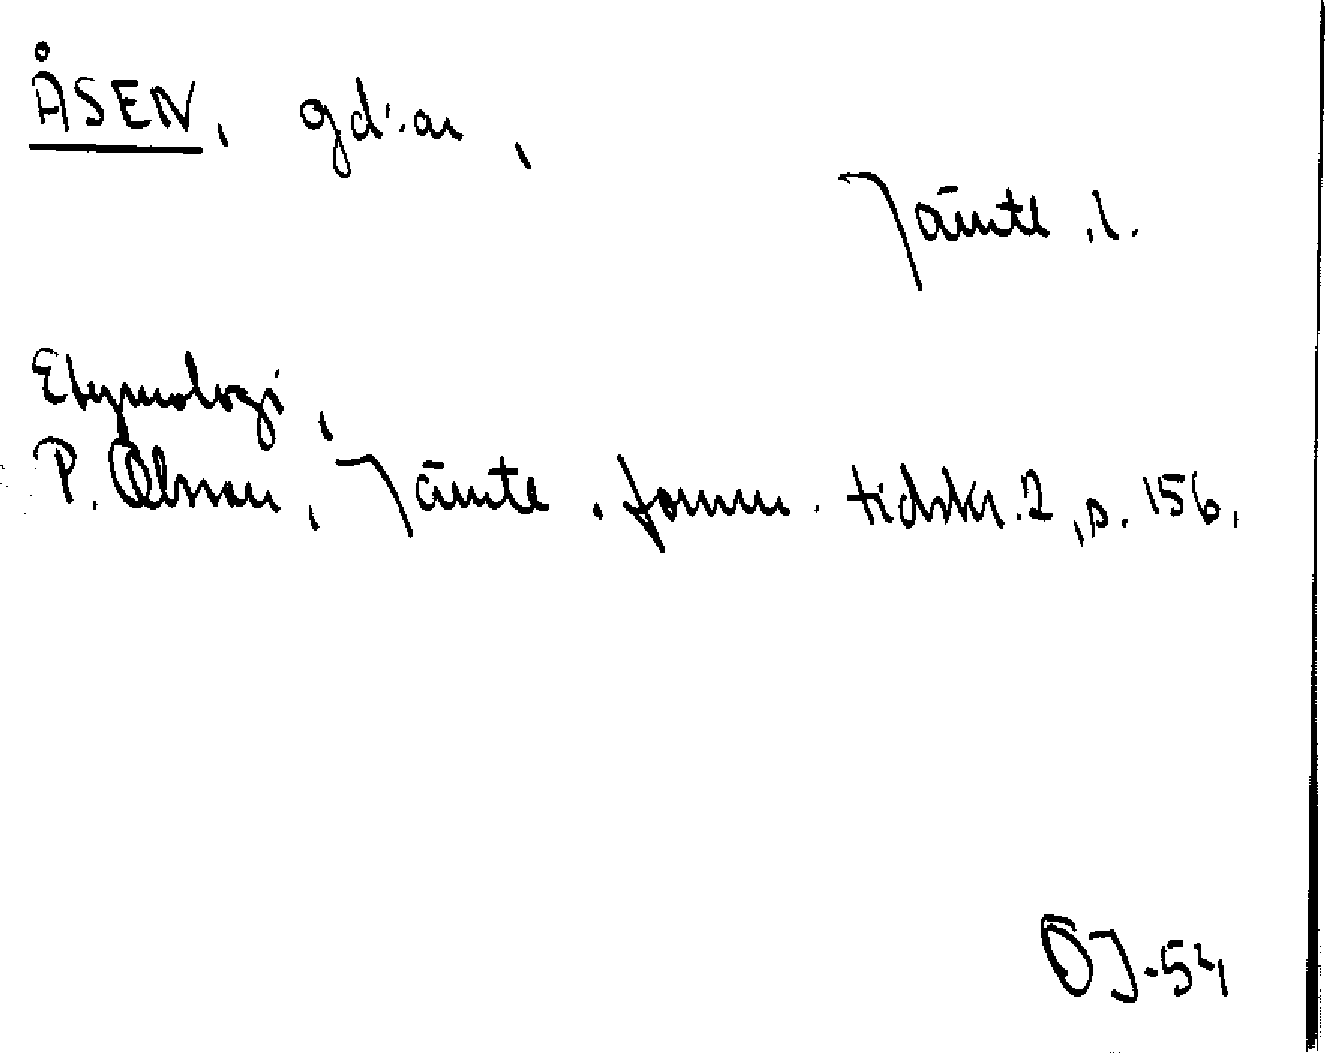 ÅSEN, gd:ar,
Jämtl.
Etymologi,
P. Olsson, Jämtl. fornm. tidskr. 2, s. 156.
ÖJ-54